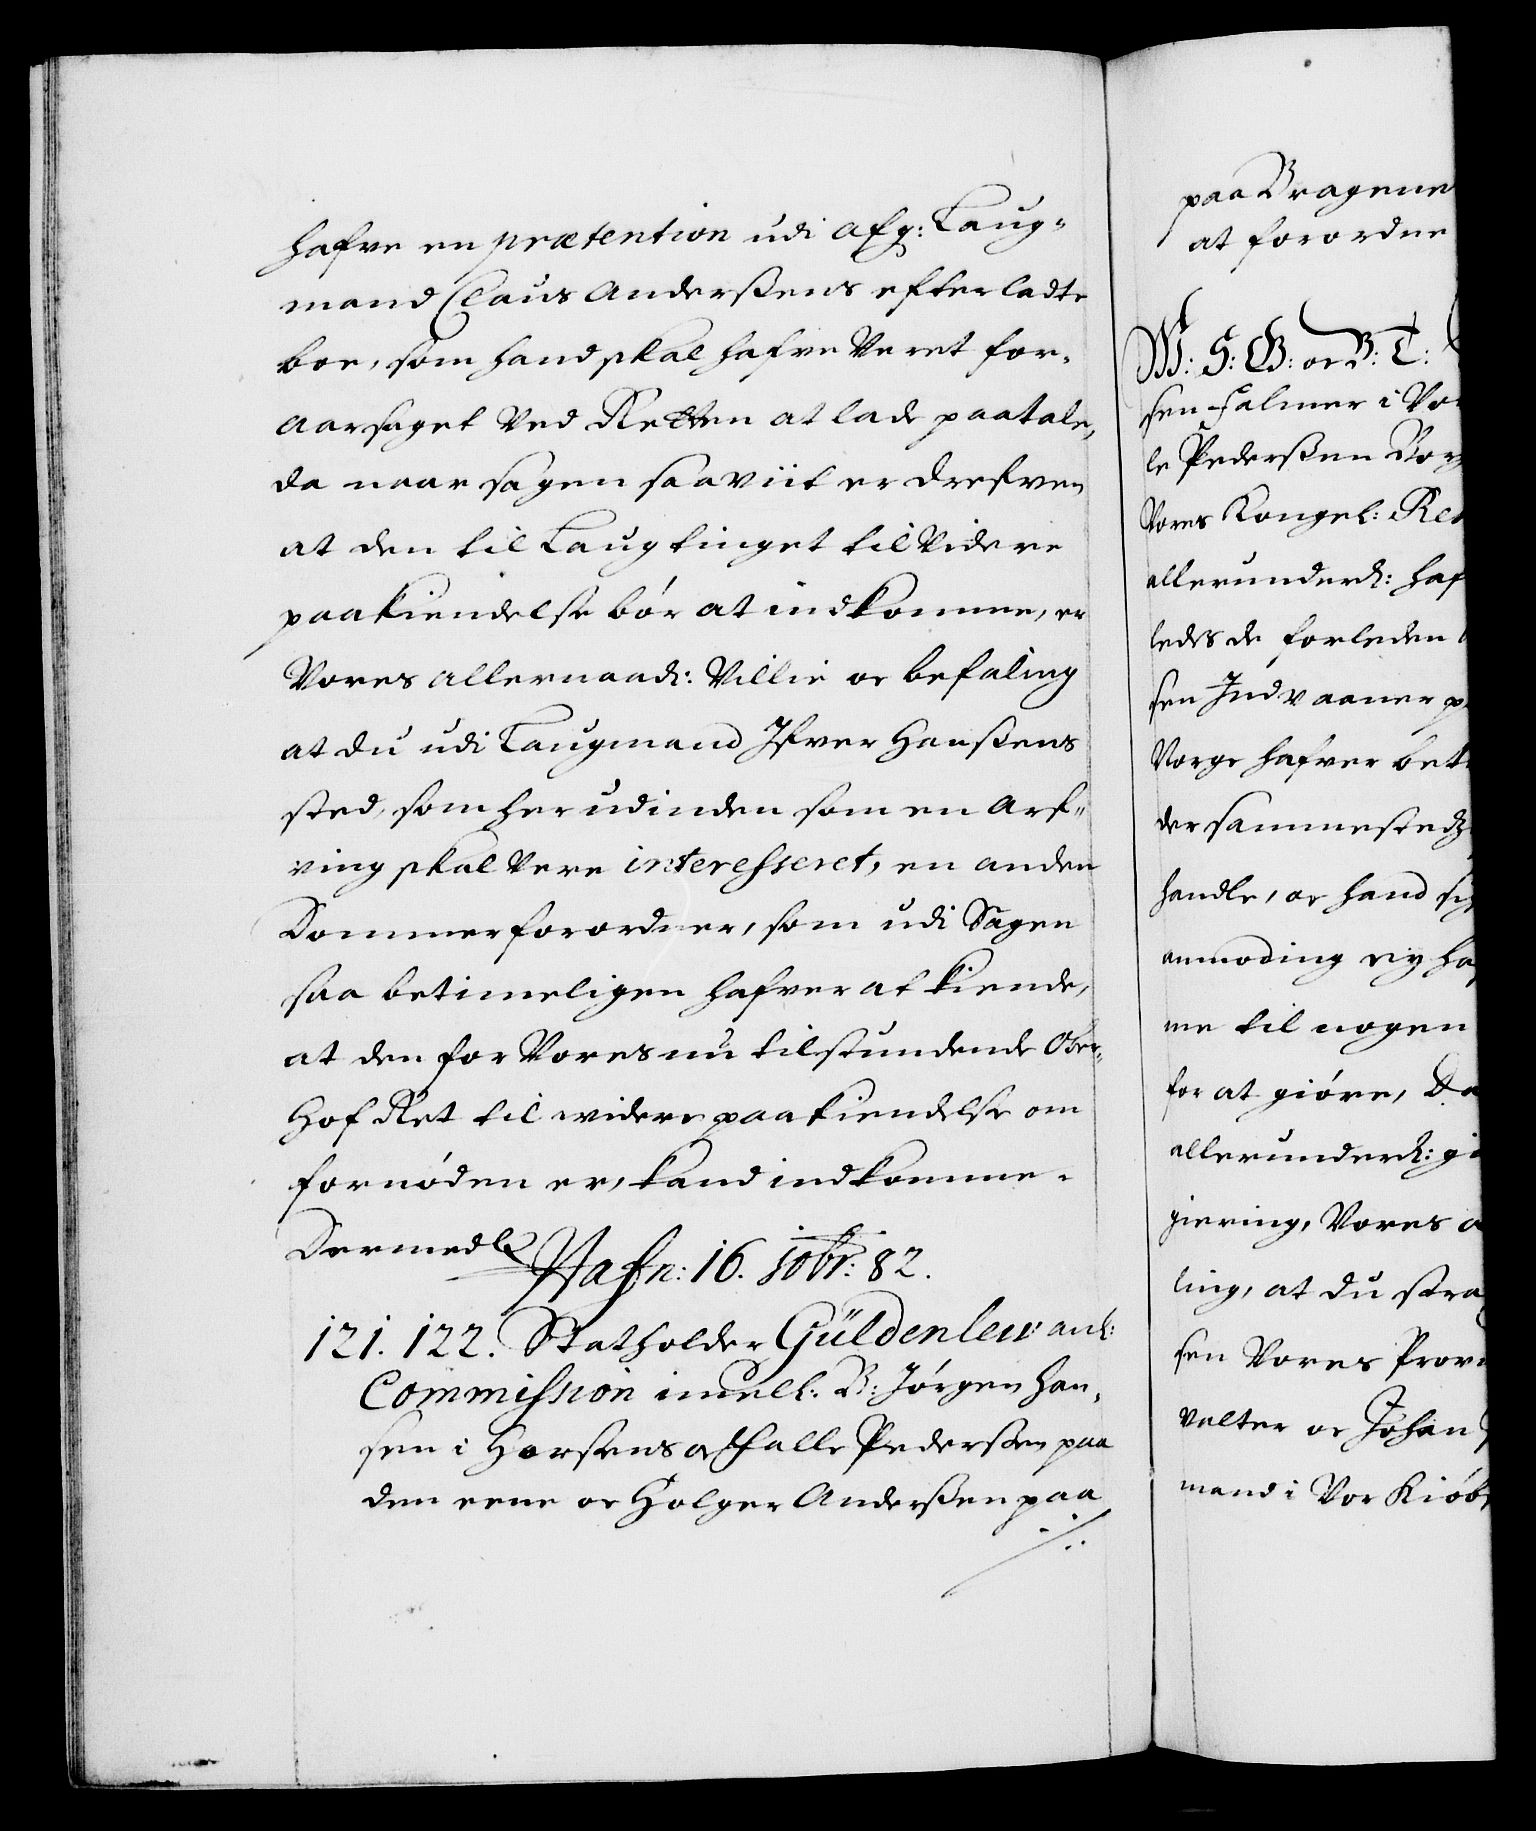 hafve en prætention udi afg: Laug-
mand Claus Anderßens efterladte
boe, som hand skal hafve veret for-
aarsaget ved Retten at lade paatale,
da naar sagen saaviit er drefven
at den til Laugtinget til videre
paakiendelse bør at indkomme, er
Vores allernaad: Villie oc befaling
at du udi Laugmand Ifver Hanßens
sted, som herudinden som en arf-
ving skal vere interesseret, en anden
Dommer forordner, som udi Sagen
saa betimeligen hafver at kiende,
at den for Vores nu tilstundende Ober-
Hof Ret til widere paakiendelse om
fornøden er, kand indkomme.
Dermed
Hafn: 16. 10br: 82.
121. 122. Statholder Güldenlew: anl:
Commission imell: B: Jørgen Han-
sen i Horsens oc Palle Pederßen paa
den eene oc Holger Anderßen paa
./.
paa Bragene
at forordne
W: G: G: oc B: T:
sen Falmer i Vor
le Pederßen Bor
Vores Kongel: Res
allerunderd: haf
ledes de forleden
sen Indvaaner p
Norge hafver bet
der sammestedz
handle, oc hand sig
anmoding ey ha
me til nogen
for at giøre, Da
allerunderd: gi
giering, Vores a
ling, at du stra
sen Vores Prov
valter oc Johan
mand i Vor Kiøb